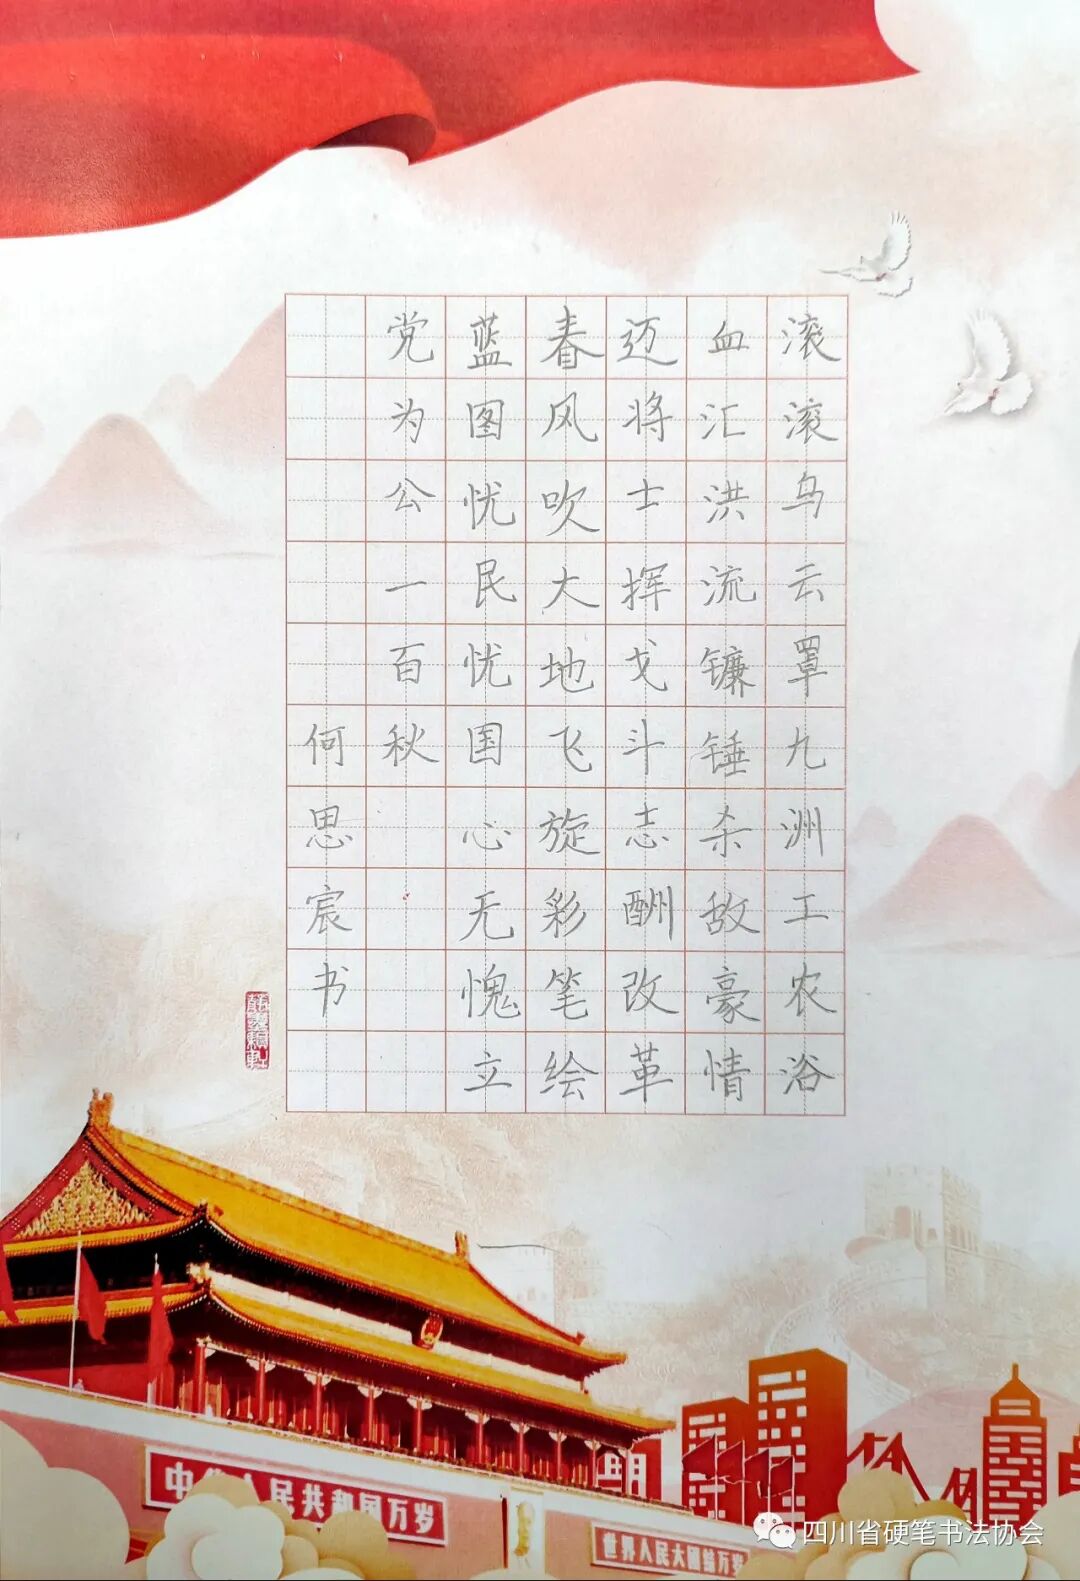 滚滚乌云罩九洲工农浴
血汇洪流镰锤杀敌豪情
迈将士挥戈斗志酬改革
春风吹大地飞旋彩笔绘
蓝图忧民忧国心无愧立
党为公一百秋
何思宸书
中华人民共和国万岁
世界人民大团结万岁
四川省硬笔书法协会